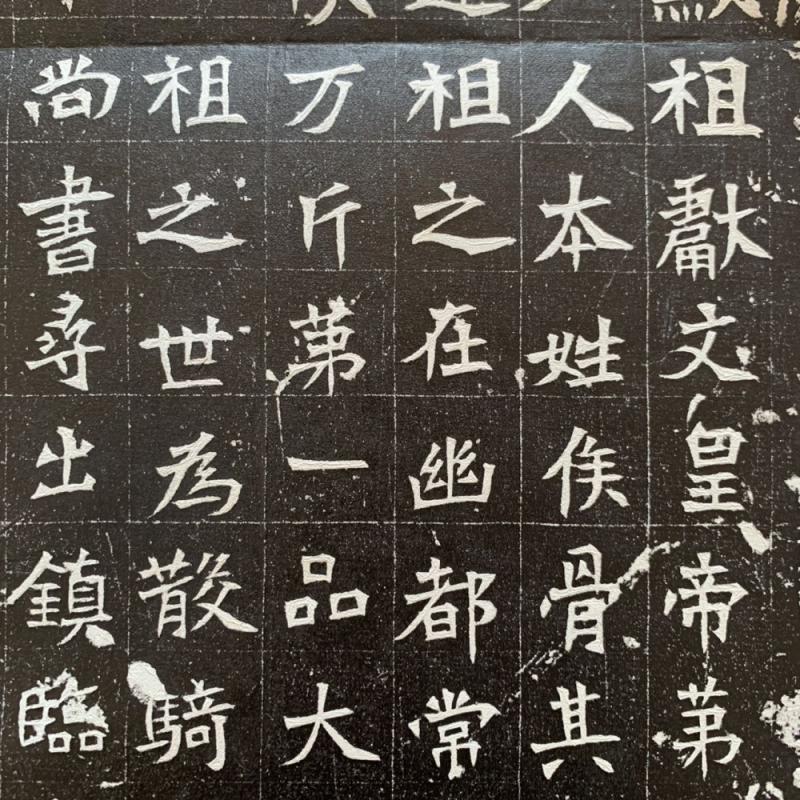 祖獻文皇帝苐
人本姓侯骨其
祖之在幽都常
万斤苐一品大
祖之世為散騎
尚書尋出鎮臨